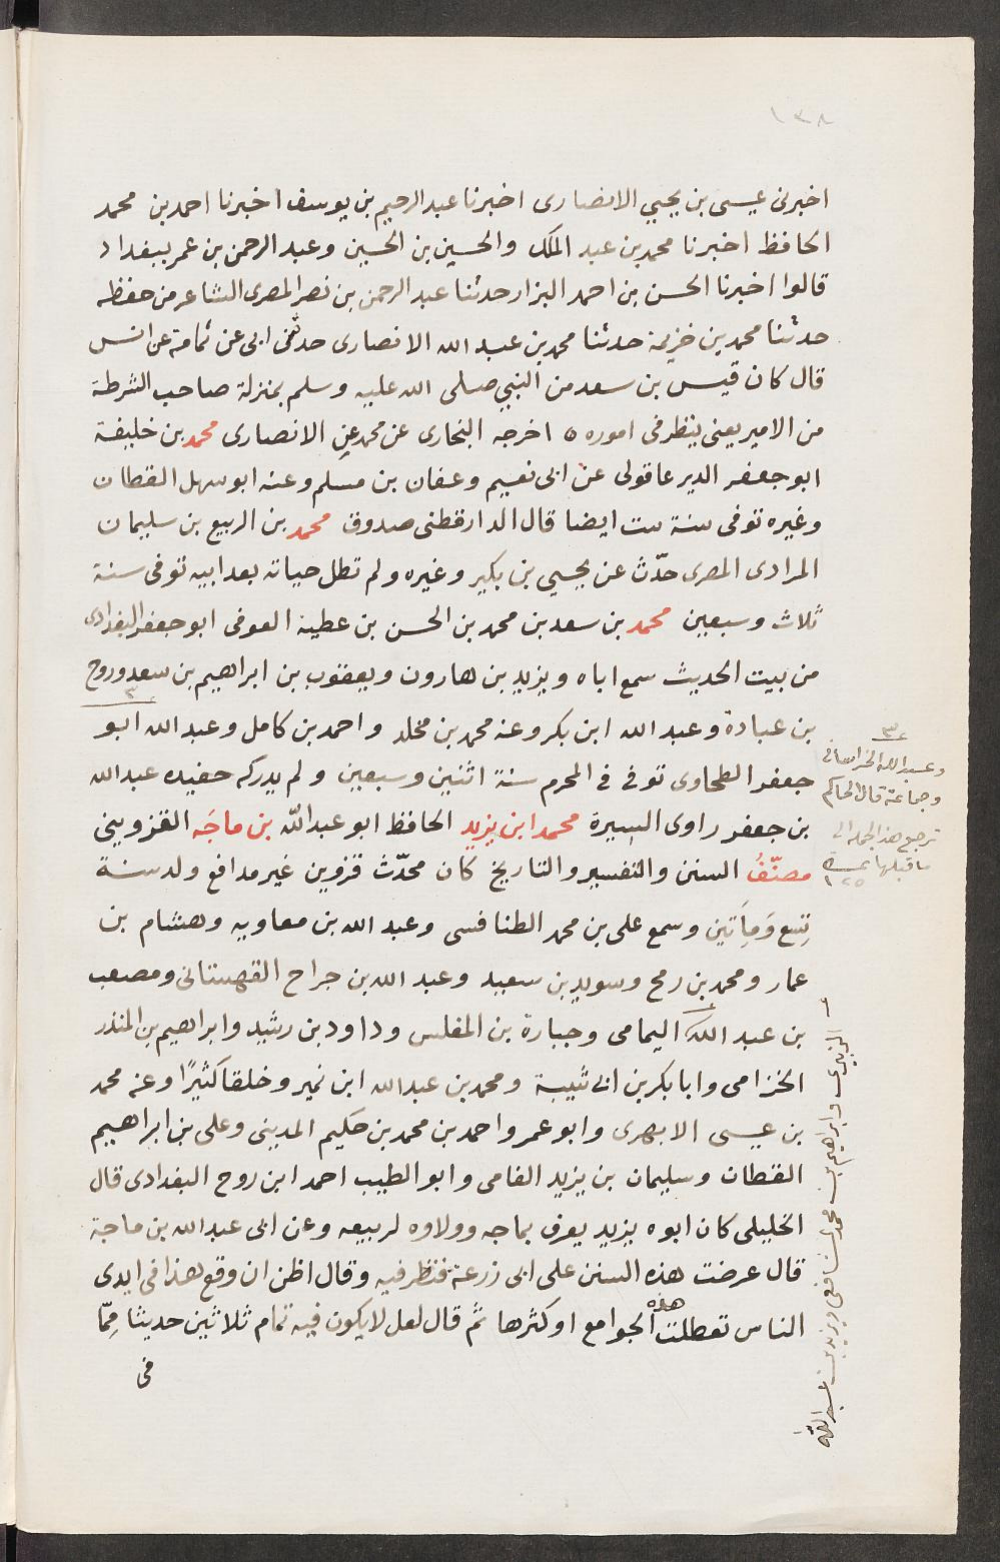 ١٣٨
اخبرنى عيسى بن يحيي الانصارى اخبرنا عبد الرحيم بن يوسف اخبرنا احمد بن محمد
الحافظ اخبرنا محمد بن عبد الملك والحسين بن الحسين وعبد الرحمن بن عمر ببغداد
قالوا اخبرنا الحسن بن احمد البزار حدثنا عبد الرحمن بن نصر المصرى الشاعر من حفظه
حدثنا محمد بن خزيمة حدثنا محمد بن عبد الله الانصارى حدثنى ابى عن ثمامة عن انس
قال كان قيس بن سعد من النبي صلى الله عليه وسلم بمنزلة صاحب الشرطة
من الامير يعنى ينظر فى اموره ه اخرجه البخارى عن محمد عن الانصارى محمد بن خليفة
ابو جعفر الدير عاقولى عن ابى نعيم وعفان بن مسلم وعنه ابو سهل القطان
وغيره توفى سنة ست ايضا قال الدارقطنى صدوق محمد بن الربيع بن سليمان
المرادى المصرى حدّث عن يحيي بن بكير وغيره ولم تطل حياته بعد ابيه توفى سنة
ثلاث وسبعين محمد بن سعد بن محمد بن الحسن بن عطية العوفى ابو جعفر البغدادى
من بيت الحديث سمع اباه ويزيد بن هارون ويعقوب بن ابراهيم بن سعد وروح
بن عبادة وعبد الله ابن بكر وعنه محمد بن مخلد واحمد بن كامل وعبد الله ابو
جعفر الطحاوى توفي في المحرم سنة اثنين وسبعين ولم يدركه حفيده عبد الله
بن جعفر راوى السيرة محمد ابن يزيد الحافظ ابو عبد الله بن ماجَه القزوينى
مصنّفُ السنن والتفسير والتاريخ كان محدّث قزوين غير مدافع ولد سنة
تِسع وَمِأَتين وسمع على بن محمد الطنافسى وعبد الله بن معاويه وهشام بن
عمار ومحمد بن رمح وسويد بن سعيد وعبد الله بن جراح القهستانى ومصعب
بن عبد الله اليمامى وجبارة بن المغلس وداود بن رشيد وابراهيم بن المنذر
الخزامى وابا بكر بن ابى شيبة ومحمد بن عبد الله ابن نمير وخلقا كثيرًا وعنه محمد
بن عيسى الابهرى وابو عمر واحمد بن محمد بن حكيم المدينى وعلى بن ابراهيم
القطان وسليمان بن يزيد الفامى وابو الطيب احمد ابن روح البغدادى قال
الخليلى كان ابوه يزيد يعرف بماجه وولاوه لربيعه وعن ابى عبد الله بن ماجة
قال عرضت هذه السنن على ابى زرعة فنظر فيه وقال اظن ان وقع هذا فى ايدى
الناس تعطلت هذه الجوامع او كثرها ثم قال لعل لا يكون فيه تمام ثلاثين حديثا مِمّا
فى
وعبد الله الخراسانى
وجماعة قال الحاكم
ترجع هذه الجملة الى
ما قبلها نمرة
١٢٥
الزبيرى وابراهيم بن محمد الشافعى ويزيد بن عبد الله